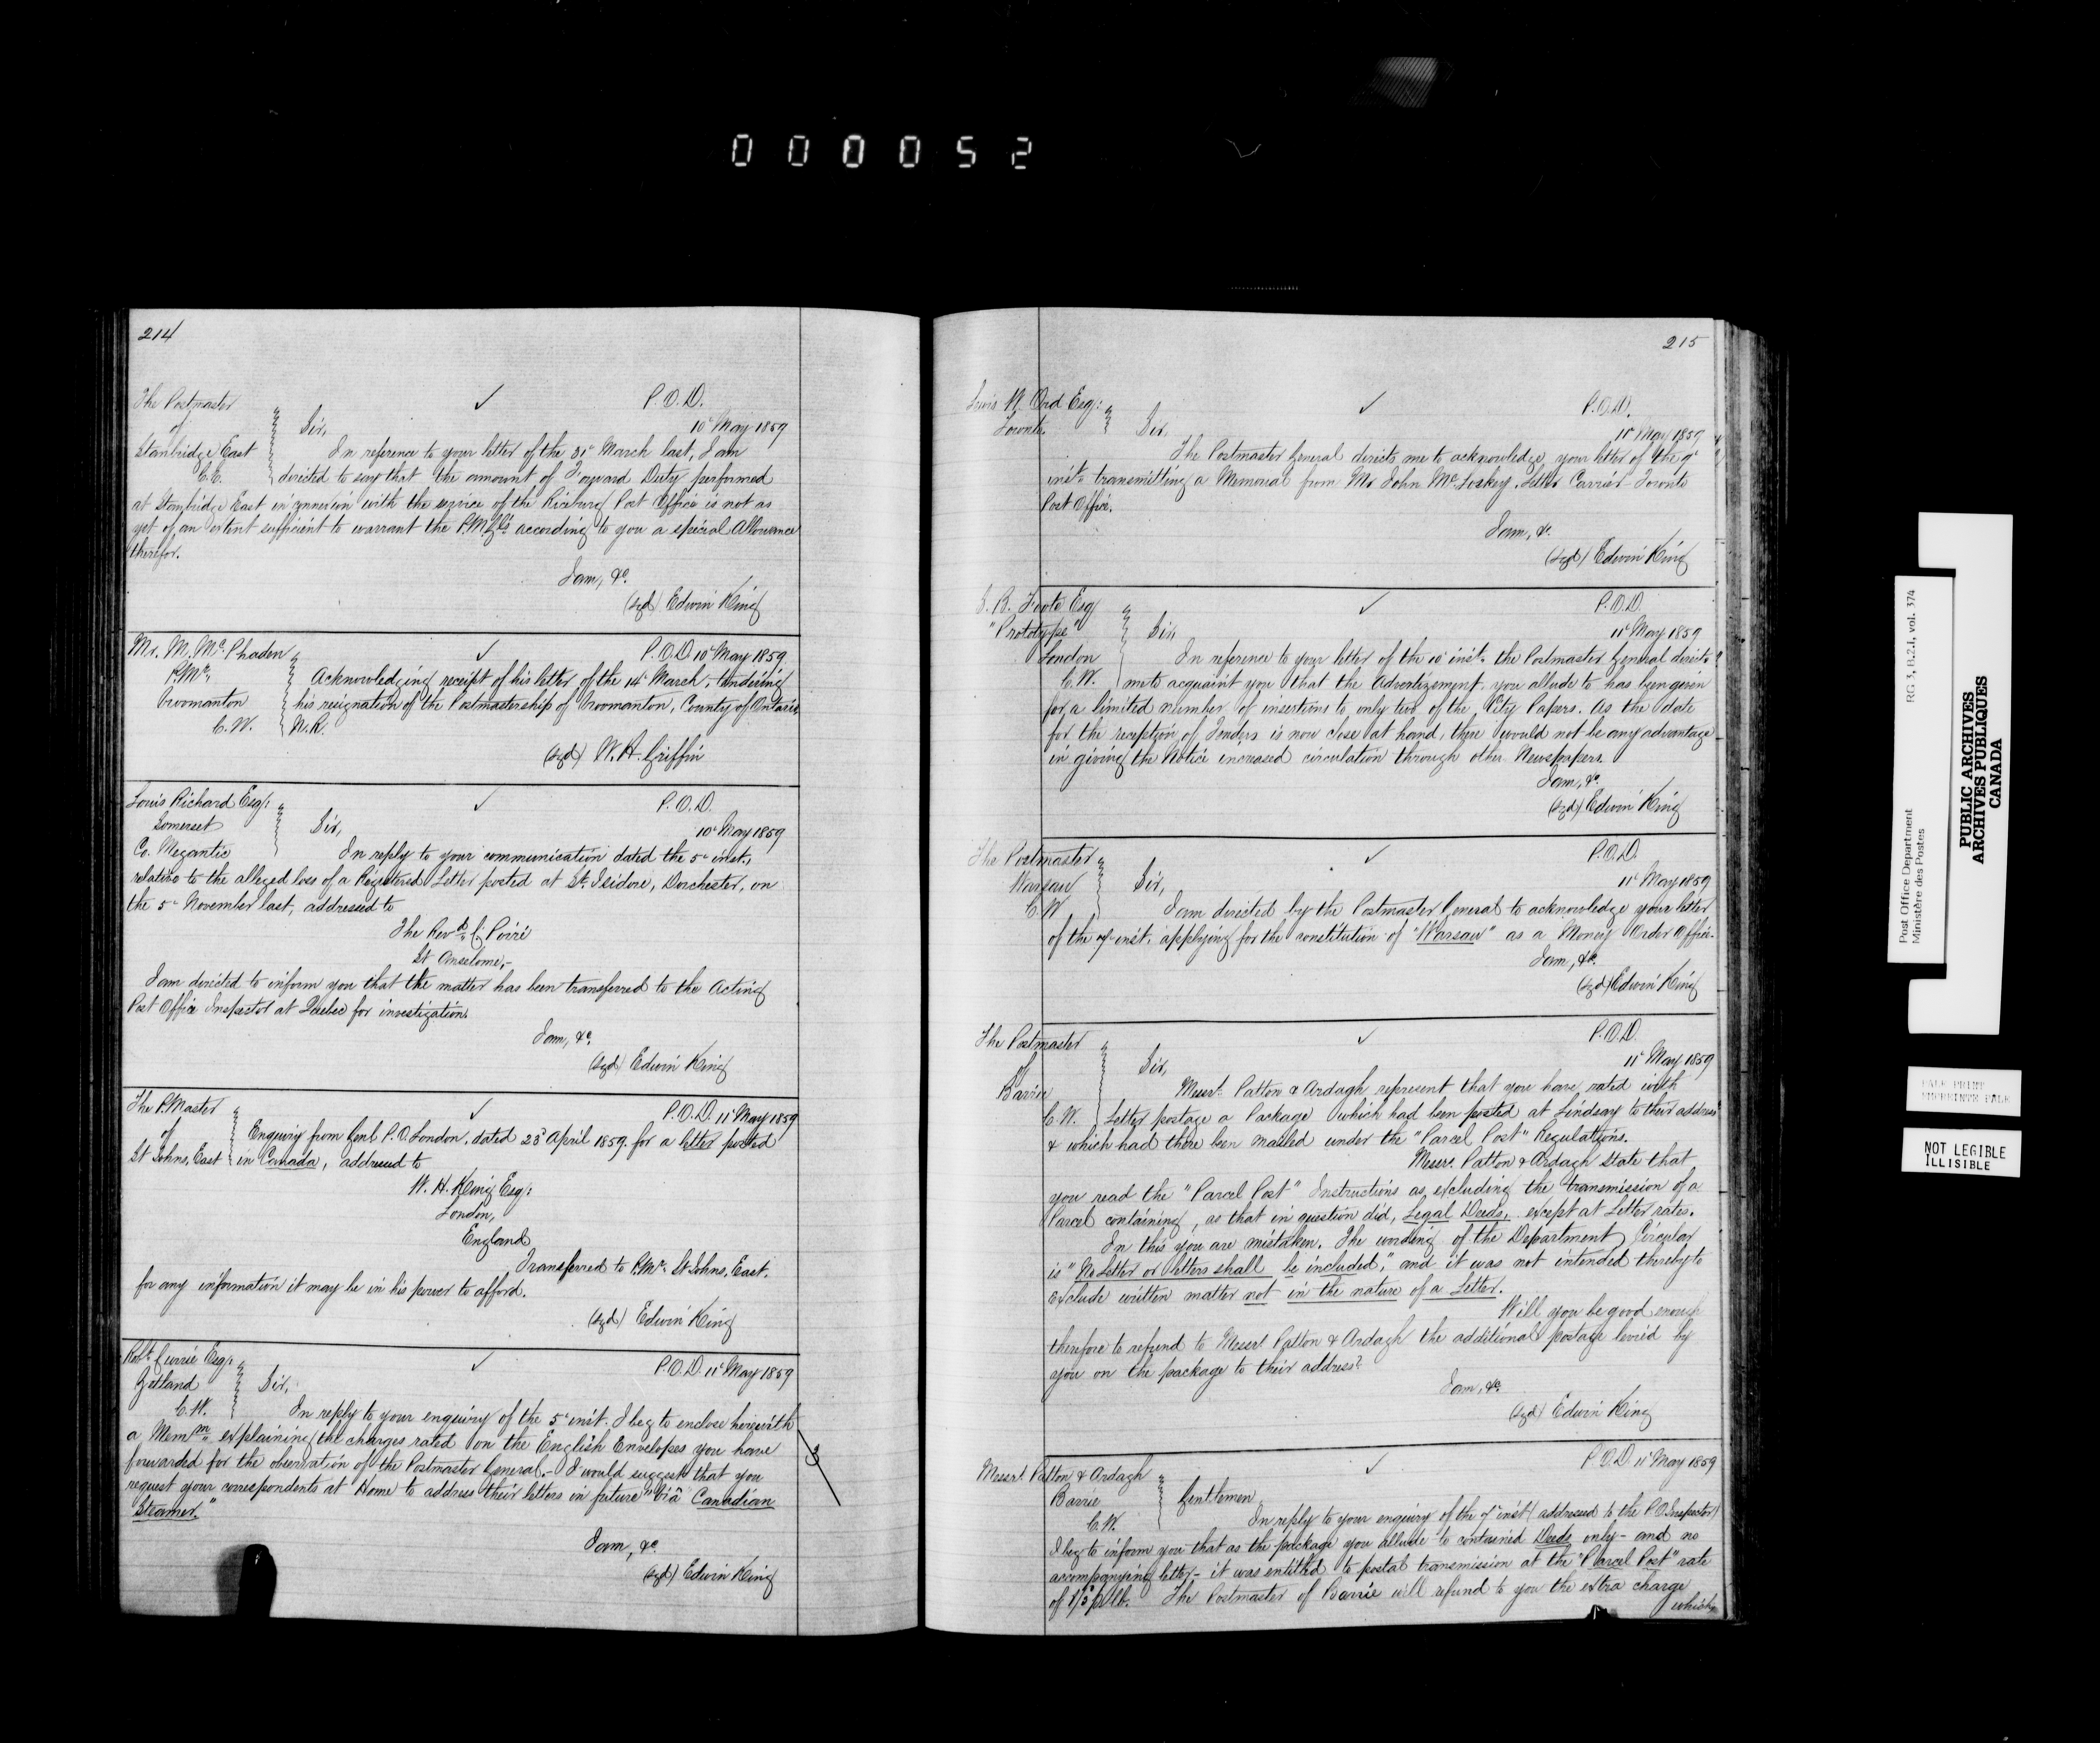 000052
214
The Postmaster
of
Stanbridge East
C.E.
✓
P.O.D.
10th May 1859
Sir,
In reference to your letter of the 31st March last, I am
directed to say that the amount of Forward Duty performed
at Stanbridge East in connexion with the service of the Riceburg Post Office is not as
yet of an extent sufficient to warrant the P.M.Gl's according to you a special Allowance
therefor.
I am, &c.
(sgd) Edwin King
Mr. M. McPhaden
P.Mr.
Vroomanton
C.W.
✓
P.O.D. 10th May 1859
Acknowledging receipt of his letter of the 14th March, tendering
his resignation of the Postmastership of Vroomanton, County of Ontario,
N.R.
(sgd) W.H. Griffin
Louis Richard Esq:
Somerset
Co. Megantic
✓
P.O.D.
10th May 1859
Sir,
In reply to your communication dated the 5th inst.,
relative to the alleged loss of a Registered Letter posted at St. Isidore, Dorchester, on
the 5th November last, addressed to
The Revd. C. Poiré
St Anselome,-
I am directed to inform you that the matter has been transferred to the Acting
Post Office Inspector at Quebec for investigation.
I am, &c.
(sgd) Edwin King
The P.Master
of
St Johns, East
✓
P.O.D. 11th May 1859
Enquiry from Genl P.O. London, dated 23d April 1859, for a letter posted
in Canada, addressed to
W. H. King Esq:
London,
England
Transferred to P.Mr. St Johns, East,
for any information it may be in his power to afford.
(sgd) Edwin King
Robt. Currie Esq:
Zetland
C.W.
✓
P.O.D. 11th May 1859
Sir,
In reply to your enquiry of the 5th inst. I beg to enclose herewith
a Memm. explaining the charges rated on the English Envelopes you have
forwarded for the observation of the Postmaster General.- I would suggest that you
request your correspondents at Home to address their letters in future "Viâ Canadian
Steamer."
I am, &c.
(sgd) Edwin King
215
Lewis W. Ord Esq:
Toronto.
✓
P.O.D.
11th May 1859
Sir,
The Postmaster General directs me to acknowledge your letter of the 9th
inst. transmitting a Memorial from Mr John McCloskey, Letter Carrier Toronto
Post Office.
I am, &c.
(sgd) Edwin King
Foote Esq
"Prototype"
London
C.W.
✓
P.O.D.
11th May 1859
Sir,
In reference to your letter of the 10th inst. the Postmaster General directs
me to acquaint you that the Advertizement you allude to has been given
for a limited number of insertions to only two of the City Papers. As the date
for the reception of Tenders is now close at hand, there would not be any advantage
in giving the Notice increased circulation through other Newspapers.
I am, &c.
(sgd) Edwin King
The Postmaster
Warsaw
C.W
✓
P.O.D.
11th May 1859
Sir,
I am directed by the Postmaster General to acknowledge your letter
of the inst. applying for the constitution of "Warsaw" as a Money Order Office.
I am, &c.
(sgd) Edwin King
The Postmaster
of
Barrie
C.W.
✓
P.O.D.
11th May 1859
Sir,
Messrs. Patton & Ardagh represent that you have rated with
Letter postage a Package which had been posted at Lindsay to their address
& which had there been mailed under the "Parcel Post" Regulations.
Messrs. Patton & Ardagh state that
you read the "Parcel Post" Instructions as excluding the transmission of a
Parcel containing, as that in question did, Legal Deeds, except at Letter rates.
In this you are mistaken. The wording of the Department Circular
is "No Letter or letters shall be included," and it was not intended thereby to
exclude written matter not in the nature of a Letter.
Will you be good enough
therefore to refund to Messrs. Patton & Ardagh the additional postage levied by
you on the package to their address?
I am, &c.
(sgd) Edwin King
Messrs. Patton & Ardagh
Barrie
C.W.
✓
P.O.D. 11th May 1859
Gentlemen,
In reply to your enquiry of the inst (addressed to the P.O. Inspector)
I beg to inform you that as the package you allude to contained Deeds only - and no
accompanying letter - it was entitled to postal transmission at the "Parcel Post" rate
of 1/3 p lb. The Postmaster of Barrie will refund to you the extra charge
which
Post Office Department RG 3, B.2.I, vol. 374
Ministère des Postes
PUBLIC ARCHIVES
ARCHIVES PUBLIQUES
CANADA
PALE PRINT
IMPRIMÉ PÂLE
NOT LEGIBLE
ILLISIBLE